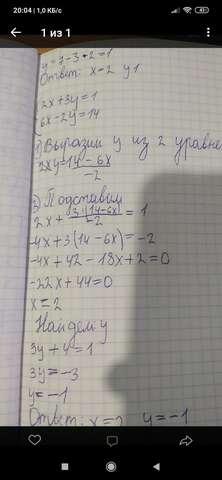 20:04 | 1,0 КБ/с
1 из 1
y = 7 - 3 • 2 = 1
Ответ: x = 2 y 1
2x + 3y = 1
6x - 2y = 14
1) Выразим y из 2 уравне
2xy = 14 - 6x / -2
2) Подставим
2x + 3(14-6x) / -2 = 1
-4x + 3(14 - 6x) = -2
-4x + 42 - 18x + 2 = 0
-22x + 44 = 0
x = 2
Найдем y
3y + 4 = 1
3y = -3
y = -1
Ответ: x = 2 y = -1